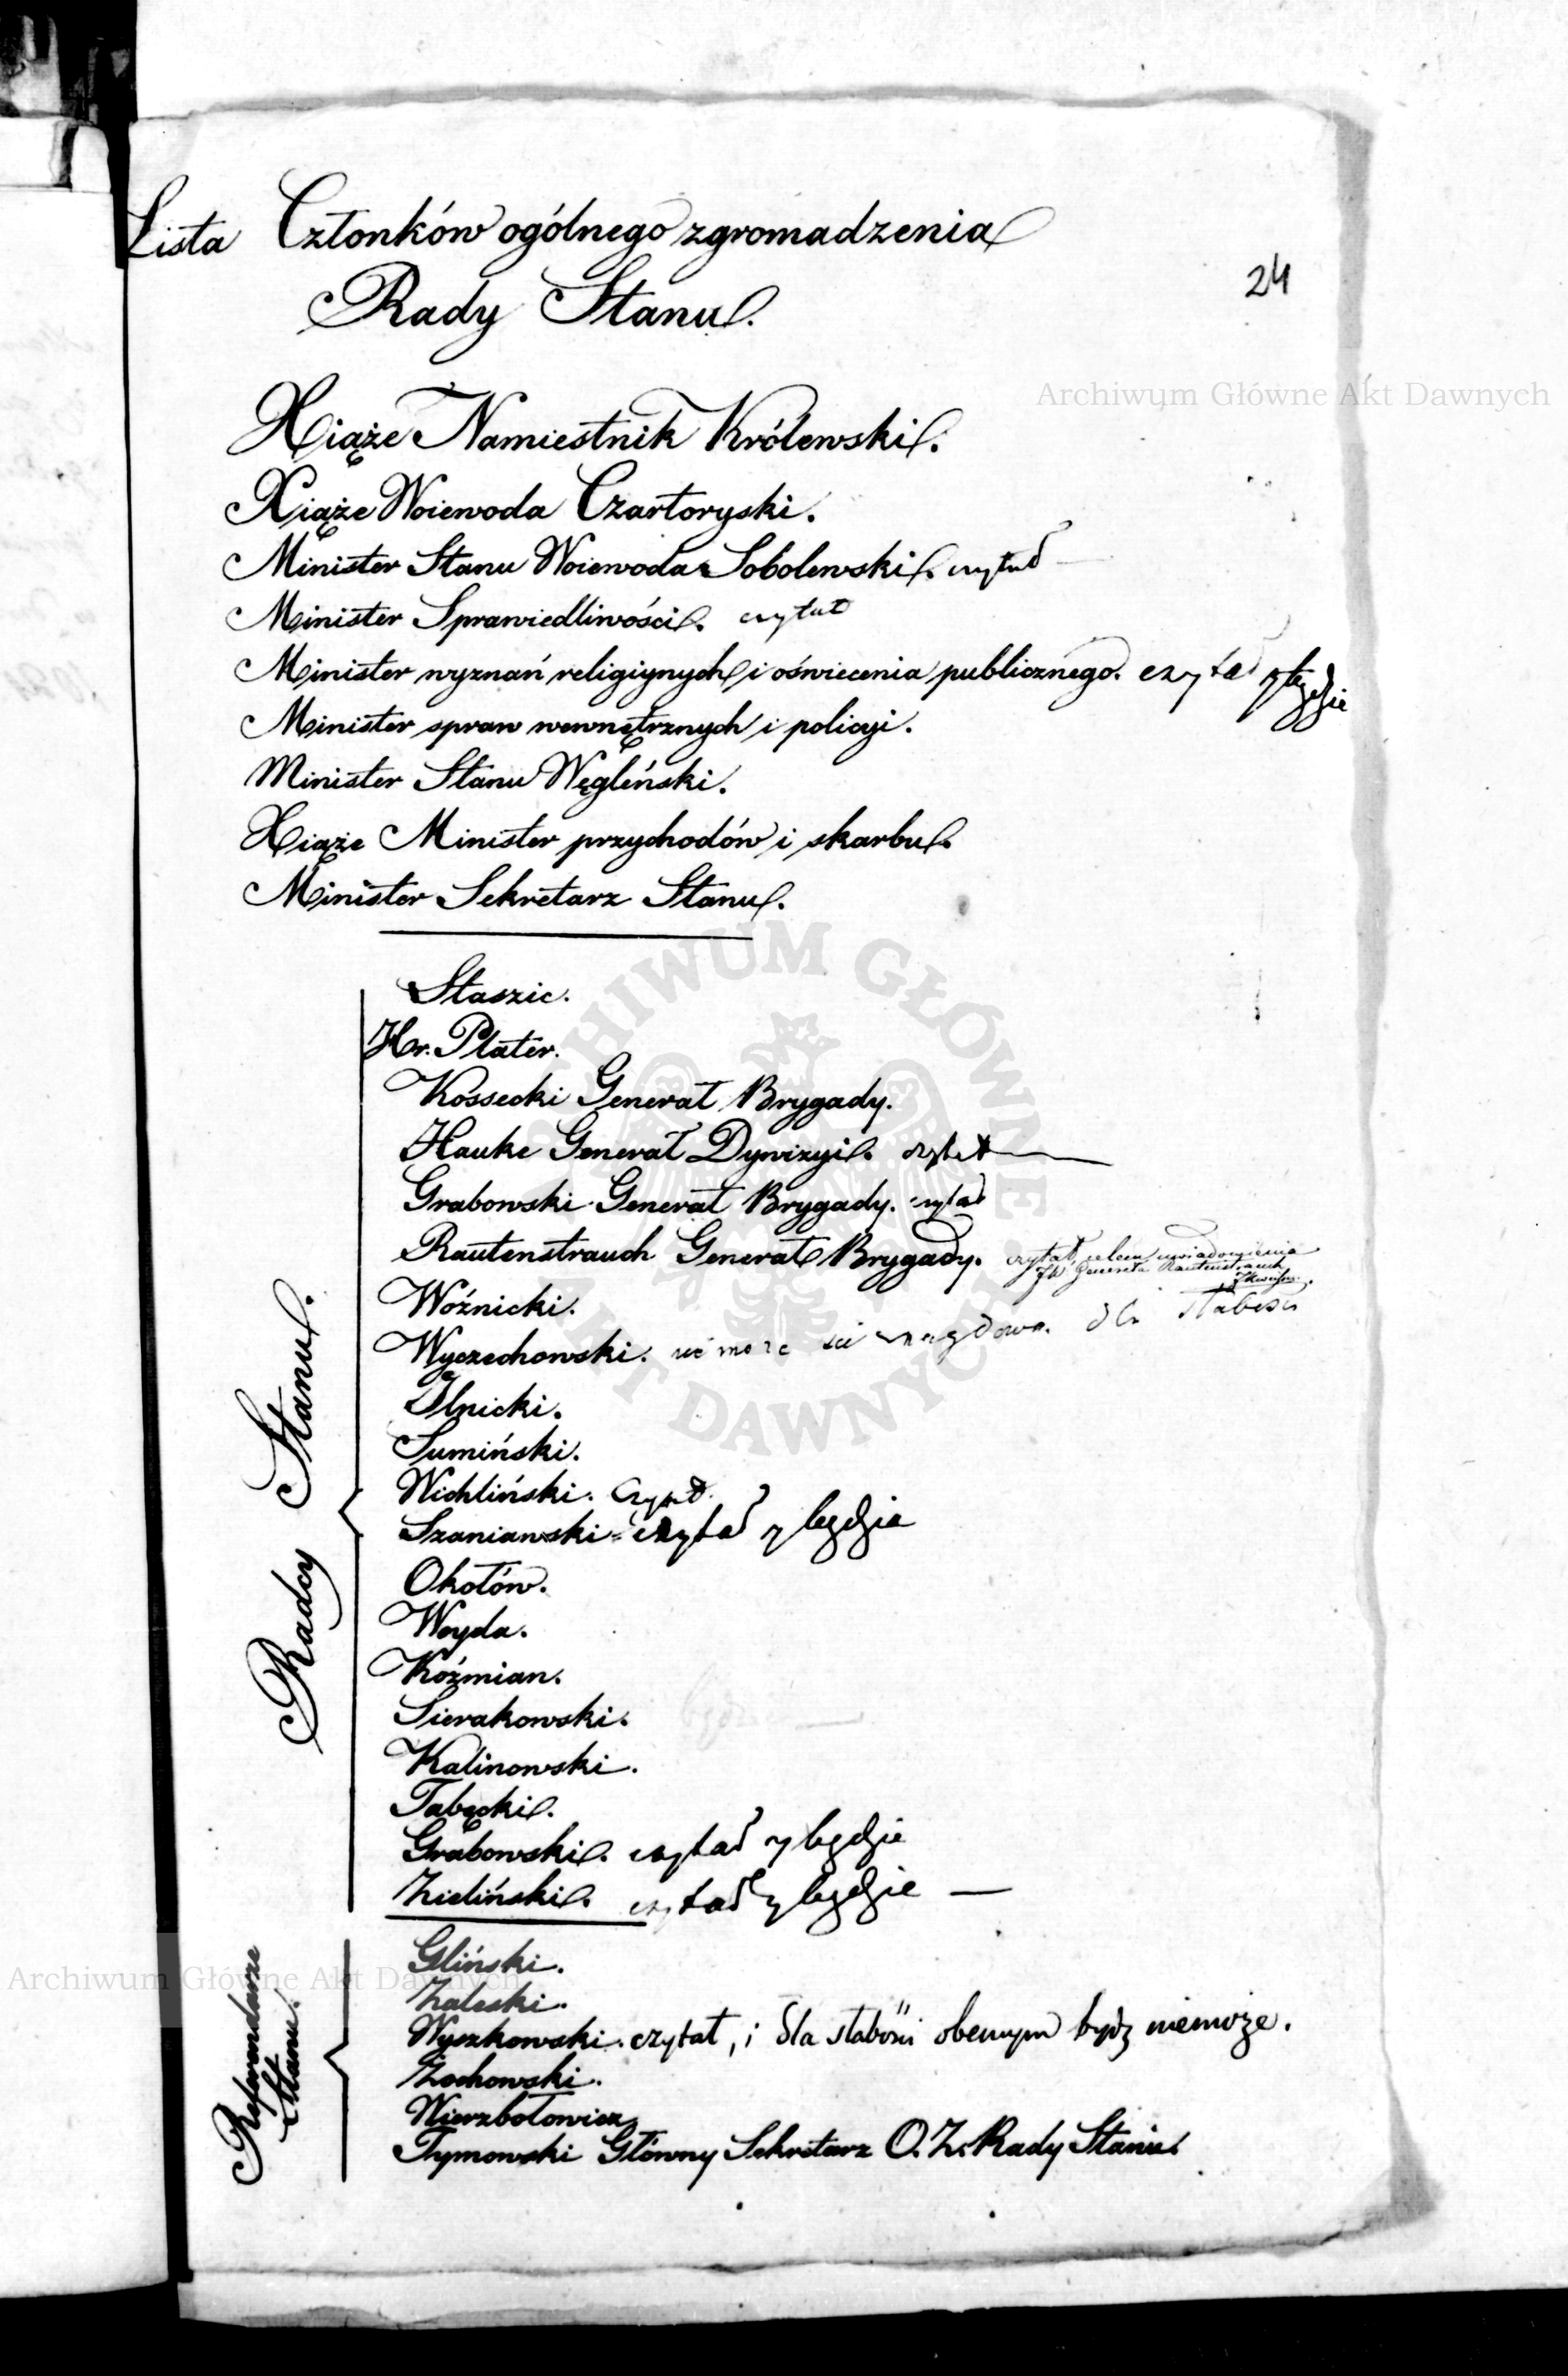 Lista Członków ogólnego zgromadzenia
Rady Stanu.
24
Archiwum Główne Akt Dawnych
Xiąże Namiestnik Królewski.
Xiąże Woiewoda Czartoryski.
Minister Stanu Woiewoda Sobolewski. czytał
Minister Sprawiedliwości. czytał
Minister wyznań religiynych i oświecenia publicznego. czytał y będzie
Minister spraw wewnętrznych i policyi.
Minister Stanu Węgleński.
Xiąże Minister przychodów i skarbu.
Minister Sekretarz Stanu.
ARCHIWUM GŁÓWNE AKT DAWNYCH
Radcy Stanu.
Staszic.
Hr. Plater.
Kossecki Generał Brygady.
Hauke Generał Dywizyi. czytał
Grabowski Generał Brygady. czytał
Rautenstrauch Generał Brygady. czytał, celem uwiadomienia
JW Generała Rautenstrauch
Woźnicki.
Wyczechowski. nie może się dla słabości
Ilnicki.
Sumiński.
Wichliński. Czytał
Szaniawski czytał y będzie
Okołów.
Woyda.
Koźmian.
Sierakowski.
Kalinowski.
Tabęcki.
Grabowski. czytał y będzie
Zieliński. czytał y będzie
Referendarze
Stanu.
Gliński.
Archiwum Główne Akt Dawnych
Zaleski.
Wyszkowski. czytał, i dla słabości obecnym bydź niemoże.
Żochowski.
Wierzbołowicz
Tymowski Główny Sekretarz O. Z. Rady Stanu.